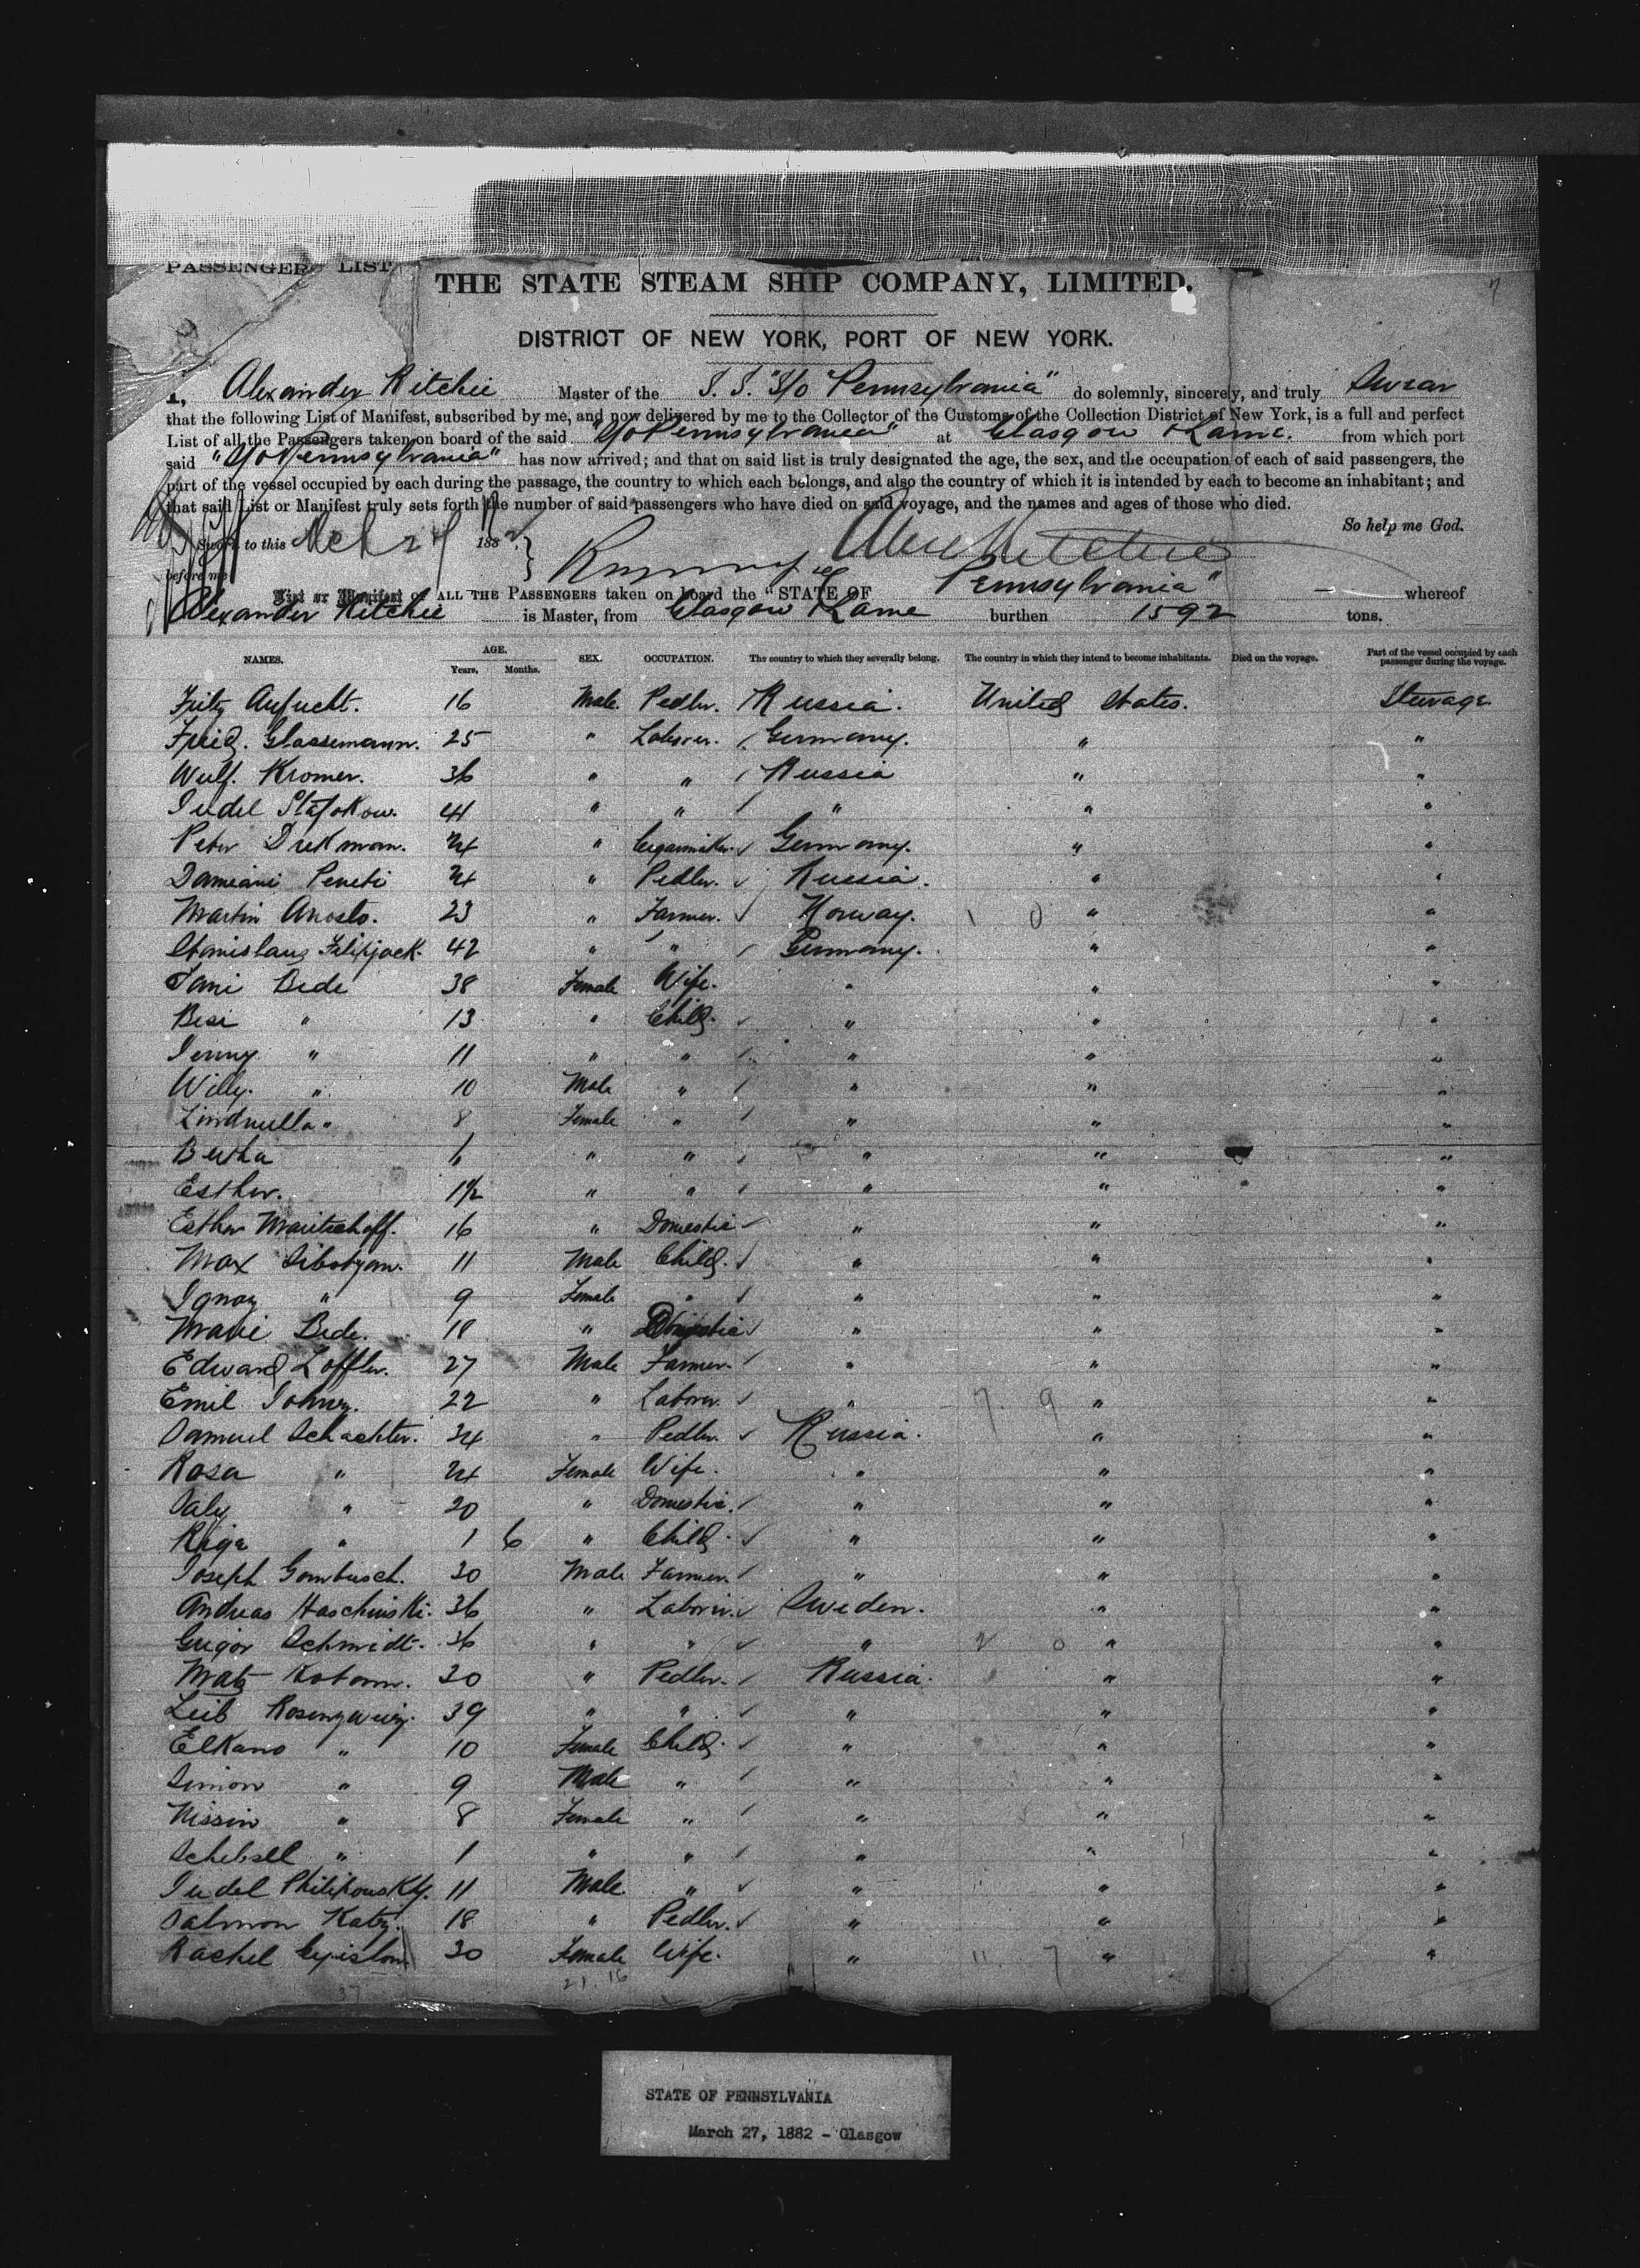 PASSENGER LIST
THE STATE STEAM SHIP COMPANY, LIMITED.
DISTRICT OF NEW YORK, PORT OF NEW YORK.
I, Alexander Ritchie Master of the S.S. "S/o Pennsylvania" do solemnly, sincerely, and truly Swear
that the following List of Manifest, subscribed by me, and now delivered by me to the Collector of the Customs of the Collection District of New York, is a full and perfect
List of all the Passengers taken on board of the said "S/o Pennsylvania" at Glasgow & Larne. from which port
said "S/o Pennsylvania" has now arrived; and that on said list is truly designated the age, the sex, and the occupation of each of said passengers, the
part of the vessel occupied by each during the passage, the country to which each belongs, and also the country of which it is intended by each to become an inhabitant; and
that said List or Manifest truly sets forth the number of said passengers who have died on said voyage, and the names and ages of those who died.
So help me God.
Sworn to this Mch 27 1882
before me
Alex Ritchie
List or Manifest of ALL THE PASSENGERS taken on board the "STATE OF Pennsylvania" whereof
Alexander Ritchie is Master, from Glasgow & Larne burthen 1592 tons.
NAMES. AGE. Years. Months. SEX. OCCUPATION. The country to which they severally belong. The country in which they intend to become inhabitants. Died on the voyage. Part of the vessel occupied by each passenger during the voyage.
Fritz Aufucht. 16 Male. Pedler. Russia. United States. Steerage
Freid. Glassemann. 25 " Laborer. Germany. " "
Wulf. Kromer. 36 " " Russia " "
Judel 41 " " " " "
Peter Drekman. 24 " Cigarmaker. Germany. " "
Damiani Peneti 24 " Pedler. Russia. " "
Martin Anosto. 23 " Farmer. Norway. " "
Stanislaus Filipjack. 42 " " Germany. " "
Jani Bede 38 Female Wife. " " "
Besi " 13 " Child. " " "
Jenny " 11 " " " " "
Willy. " 10 Male " " " "
Lindmilla " 8 Female " " " "
Bertha 6 " " " " "
Esther. 1½ " " " " "
Esther Mauitschoff. 16 " Domestic " " "
Max Sibotzan. 11 Male Child. " " "
Ignaz " 9 Female " " " "
Mavi Bede. 18 " Domestic " " "
Edward Loffler. 27 Male Farmer. " " "
Emil 22 " Laborer. " " "
Samuel Schachter. 34 " Pedler. Russia. " "
Rosa " 24 Female Wife. " " "
Saly " 20 " Domestic. " " "
Riga " 1 6 " Child. " " "
Joseph Gombusch. 30 Male Farmer. " " "
Andreas Haschinski. 36 " Laborer. Sweden. " "
Grigor Schmidt. 36 " " " " "
Matz 30 " Pedler. Russia. " "
Leib Rosenzweig. 39 " " " " "
Elkano " 10 Female Child. " " "
Simon " 9 Male " " " "
Nissin " 8 Female " " " "
Schebsell " 1 " " " " "
Judel Philipousky. 11 Male. " " " "
Salmon Katz. 18 " Pedler. " " "
Rachel 30 Female Wife. " " "
37 21. 16
STATE OF PENNSYLVANIA
March 27, 1882 - Glasgow